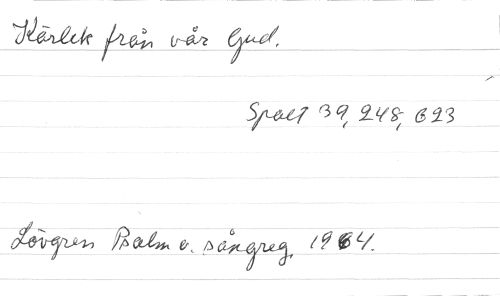 Kärlek från vår Gud.
Spalt 39, 248, 623
Lövgren Psalm o. sångreg. 1964.